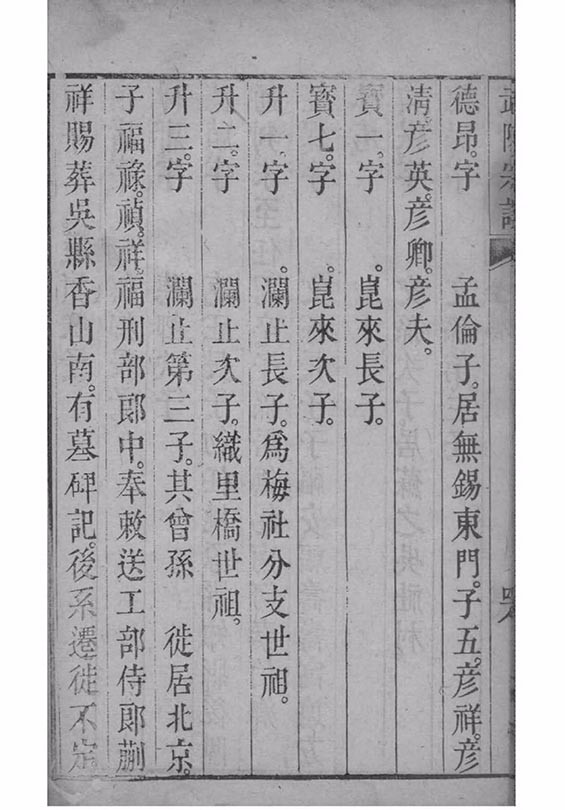 武陵宗譜
德昂。字 孟倫子。居無錫東門。子五。彦祥。彦
淸。彦英。彦卿。彦夫。
寳一。字 。崑來長子。
寳七。字 。崑來次子。
升一。字 。瀾止長子。爲梅社分支世祖。
升二。字 瀾止次子。織里橋世祖。
升三。字 瀾止第三子。其曾孫 徙居北京。
子福祿。禎。祥。福刑部郎中。奉敕送工部侍郎蒯
祥賜葬吳縣香山南。有墓碑記。後系遷徙不定